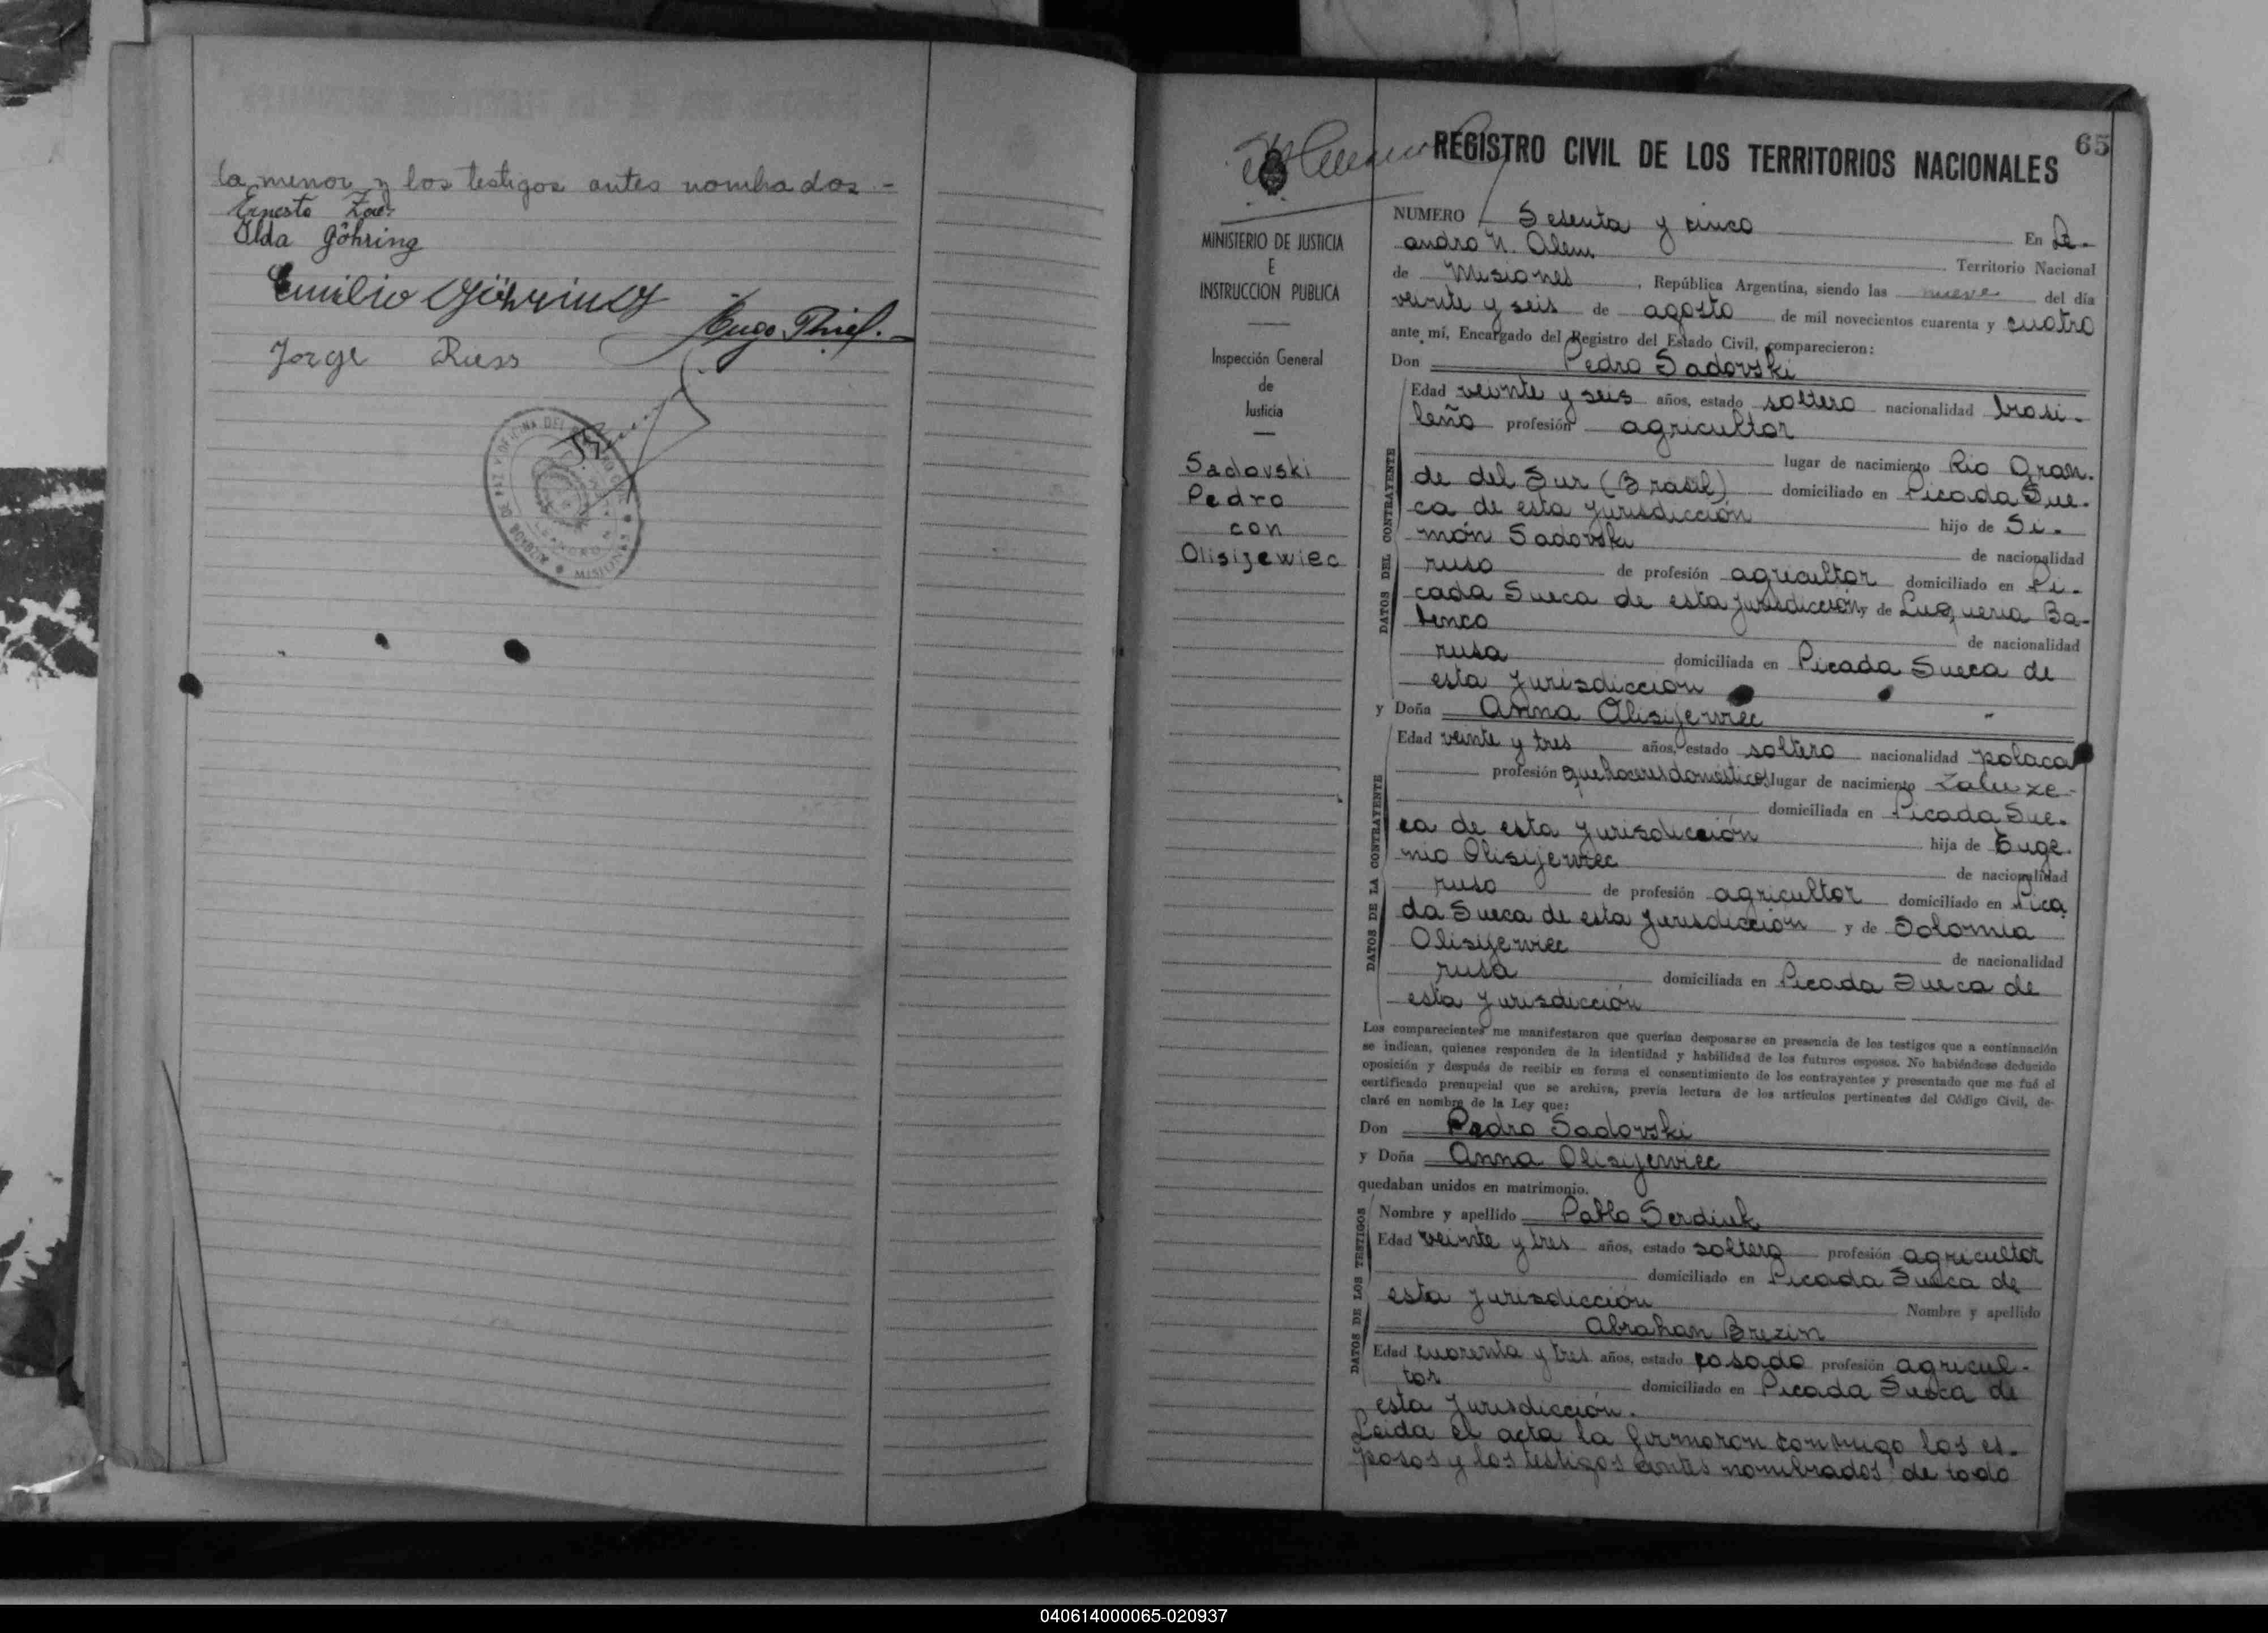 la menor y los testigos antes nombrados.-
Ernesto
Ilda Göhring
Emilio Göhring
Hugo Thiel.-
Jorge Russ
MISIONES
65
REGISTRO CIVIL DE LOS TERRITORIOS NACIONALES
MINISTERIO DE JUSTICIA
E
INSTRUCCION PUBLICA
Inspección General
de
Justicia
Sadovski
Pedro
con
Olisijewiec
NUMERO Sesenta y cinco En Le-
andro N. Alem Territorio Nacional
de Misiones, República Argentina, siendo las nueve del día
veinte y seis de agosto de mil novecientos cuarenta y cuatro
ante mí, Encargado del Registro del Estado Civil, comparecieron:
Don Pedro Sadovski
DATOS DEL CONTRAYENTE
Edad veinte y seis años, estado soltero nacionalidad brasi-
leño profesión agricultor
lugar de nacimiento Rio Gran-
de del Sur (Brasil) domiciliado en Picada Sue-
ca de esta jurisdicción hijo de Si-
món Sadovski de nacionalidad
ruso de profesión agricultor domiciliado en Pi-
cada Sueca de esta jurisdicción y de Luqueria Ba-
benco de nacionalidad
rusa domiciliada en Picada Sueca de
esta jurisdicción
y Doña Anna Olisijewiec
DATOS DE LA CONTRAYENTE
Edad veinte y tres años, estado soltera nacionalidad polaca
profesión quehaceres domésticos lugar de nacimiento Zaluze-
domiciliada en Picada Sue-
ca de esta jurisdicción hija de Euge-
nio Olisijewiec de nacionalidad
ruso de profesión agricultor domiciliado en Pica
da Sueca de esta jurisdicción y de Solomia
Olisijewiec de nacionalidad
rusa domiciliada en Picada Sueca de
esta jurisdicción
Los comparecientes me manifestaron que querían desposarse en presencia de los testigos que a continuación
se indican, quienes responden de la identidad y habilidad de los futuros esposos. No habiéndose deducido
oposición y después de recibir en forma el consentimiento de los contrayentes y presentado que me fué el
certificado prenupcial que se archiva, previa lectura de los artículos pertinentes del Código Civil, de-
claré en nombre de la Ley que:
Don Pedro Sadovski
y Doña Anna Olisijewiec
quedaban unidos en matrimonio.
DATOS DE LOS TESTIGOS
Nombre y apellido Pablo Serdiuk
Edad veinte y tres años, estado soltero profesión agricultor
domiciliado en Picada Sueca de
esta jurisdicción Nombre y apellido
Abrahan Brezin
Edad cuarenta y tres años, estado casado profesión agricul-
tor domiciliado en Picada Sueca de
esta jurisdicción.
Leida el acta la firmaron conmigo los es-
posos y los testigos antes nombrados, de todo
040614000065-020937